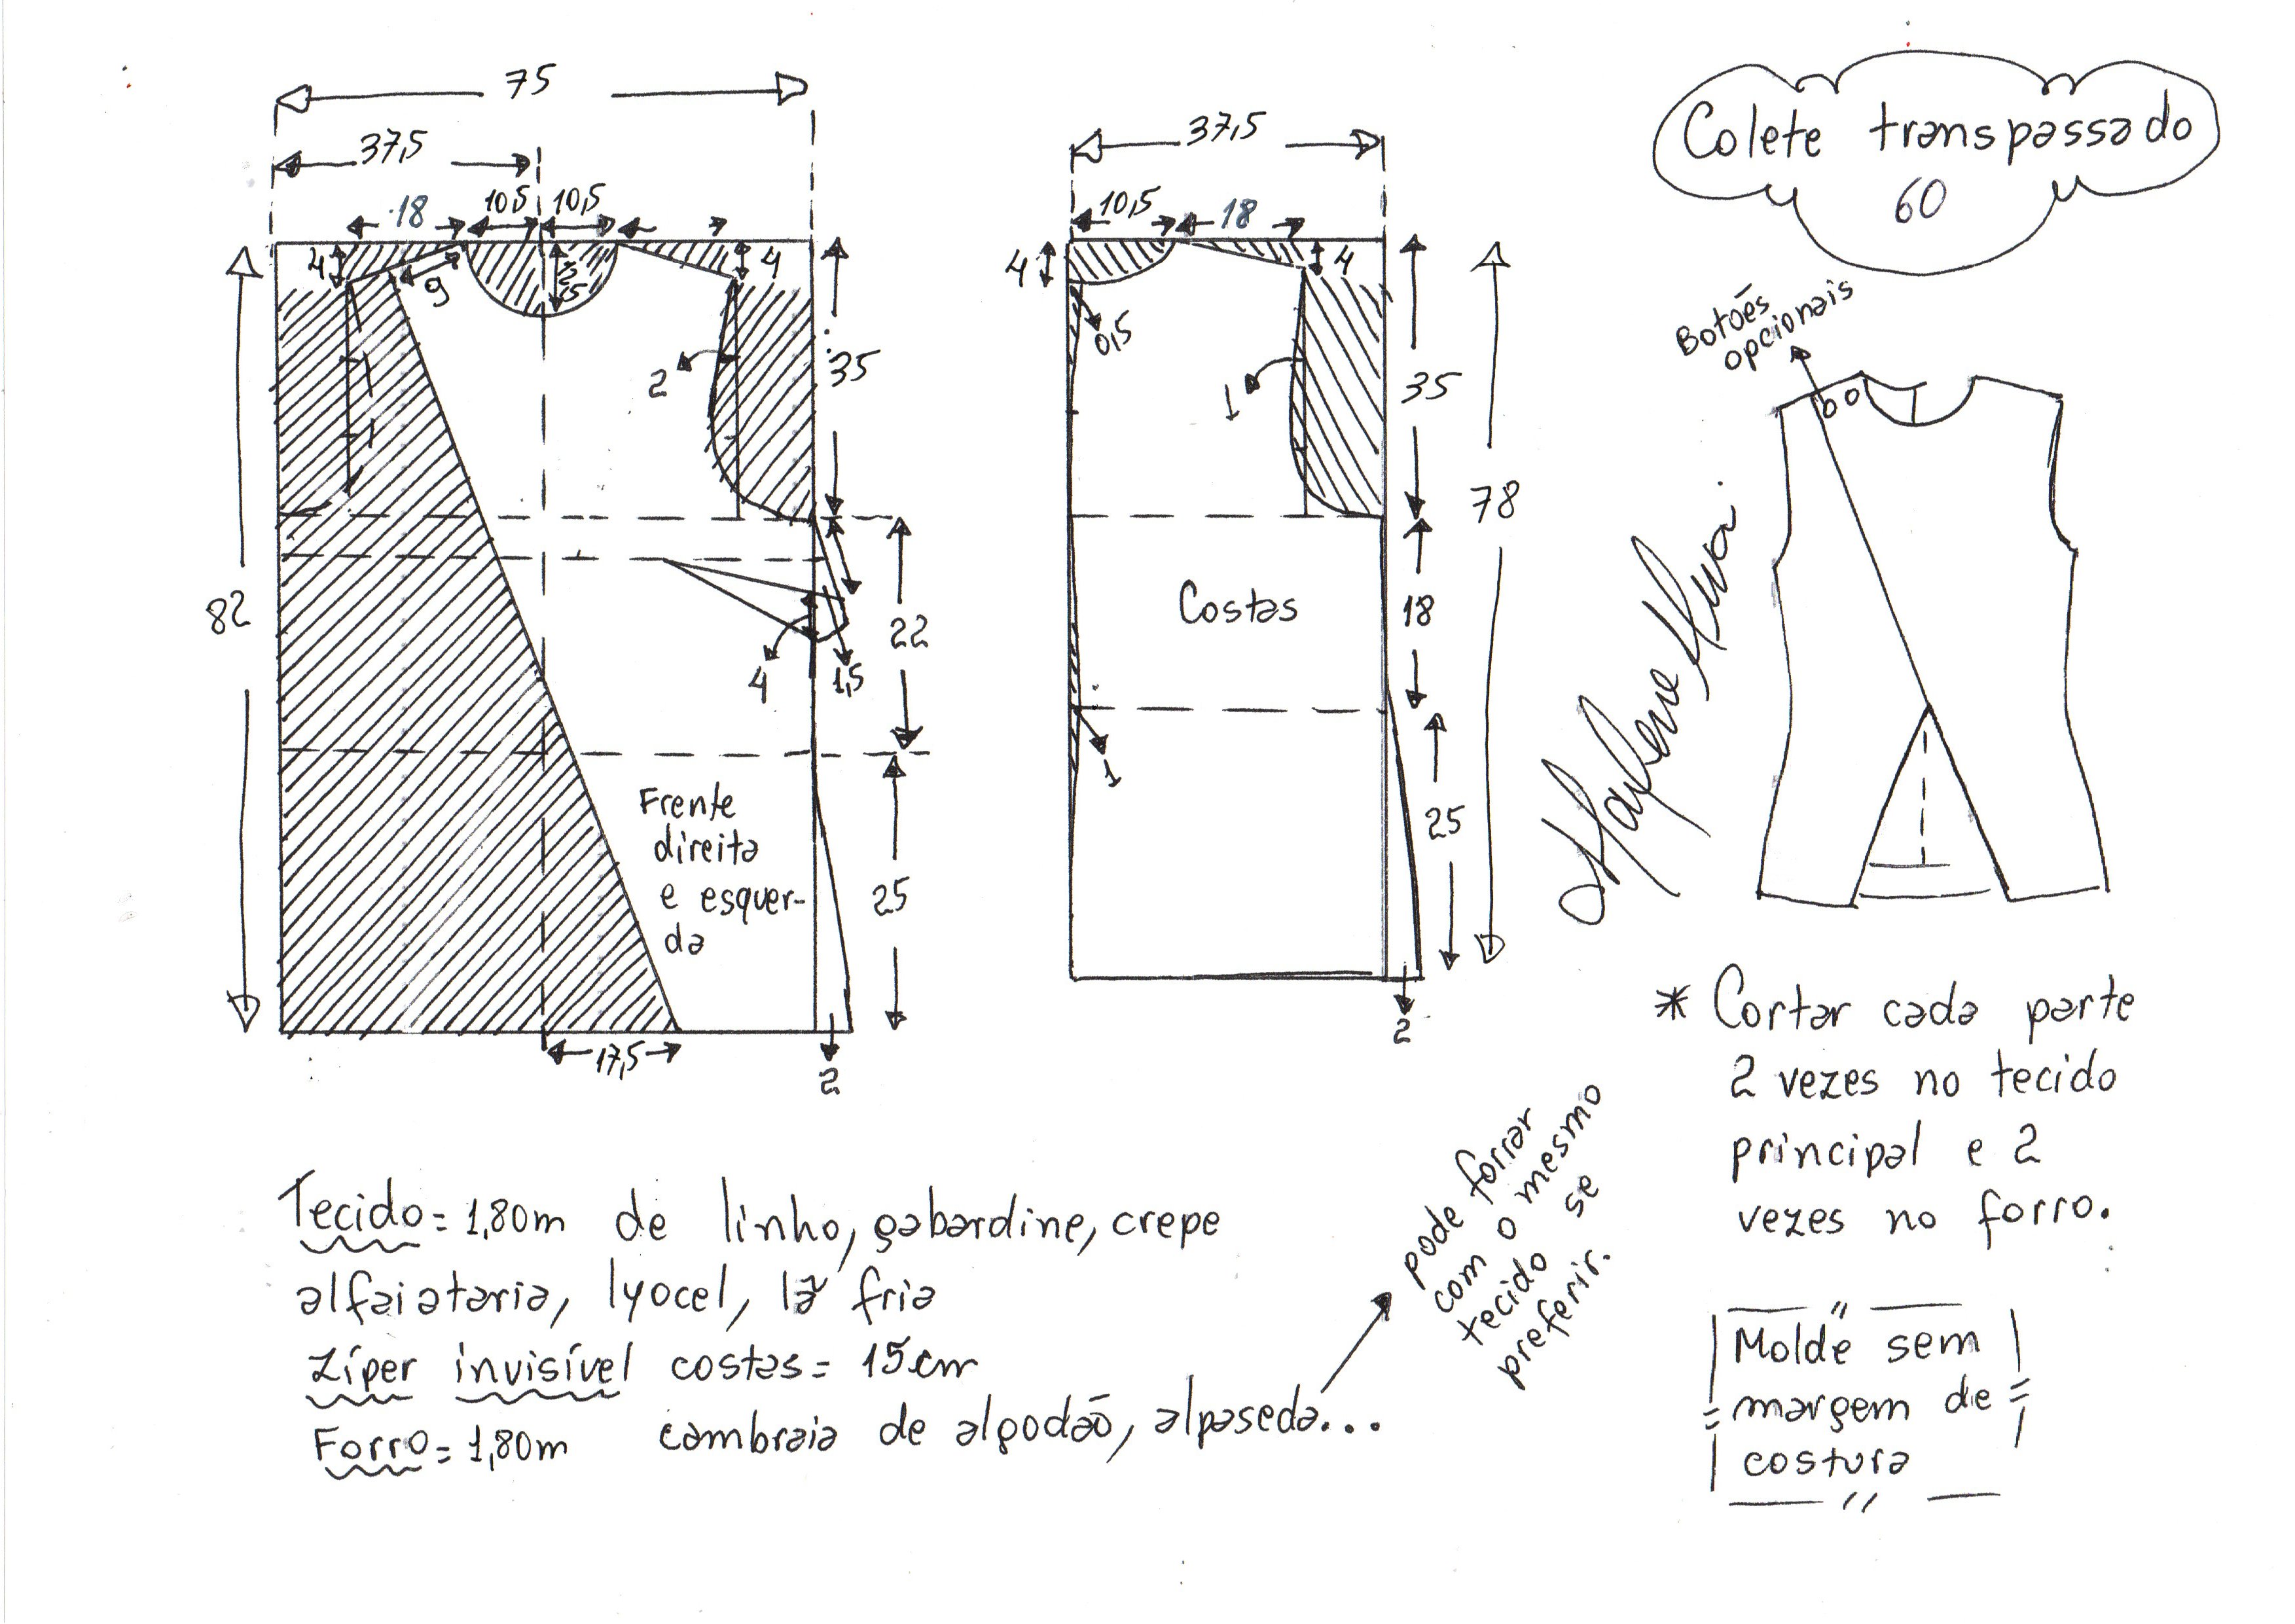 75
37,5
18
10,5
10,5
4
9
4
2
35
82
22
4
1,5
25
17,5
2
Frente
direita
e esquer-
da
37,5
10,5
18
4
4
0,5
1
35
78
18
25
1
2
Costas
Colete transpassado
60
Botões
opcionais
* Cortar cada parte
2 vezes no tecido
principal e 2
vezes no forro.
Molde sem
margem de
costura
Tecido = 1,80m de linho, gabardine, crepe
alfaiataria, lyocel, lã fria
Zíper invisível costas = 15cm
Forro = 1,80m cambraia de algodão, alpaseda...
pode forrar
com o mesmo
tecido se
preferir.